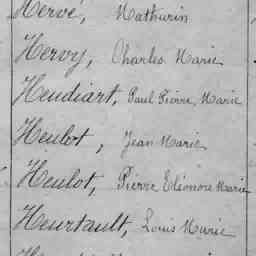 Hervé, Mathurin
Hervy, Charles Marie
Heudiart, Paul Pierre Marie
Heulot, Jean Marie
Heulot, Pierre Eléonore Marie
Heurtault, Louis Marie